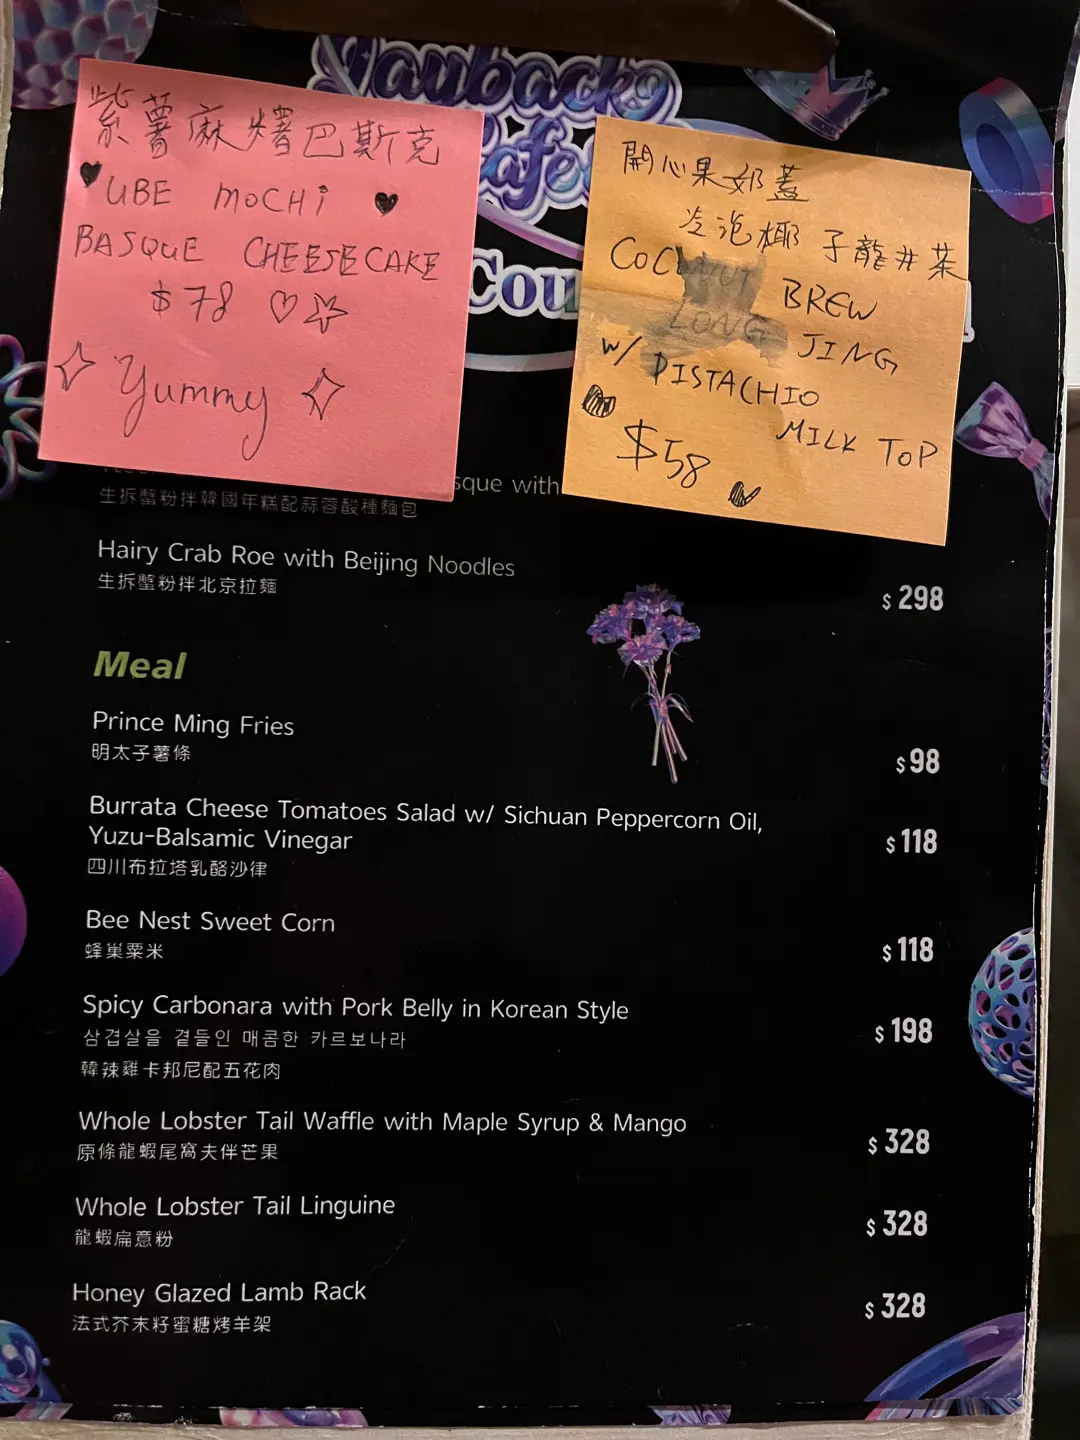 Cafe
Cou
紫薯麻糬巴斯克
UBE MOCHi
BASQUE CHEESECAKE
$78
Yummy
開心果奶蓋
冷泡椰子龍井茶
COCONUT BREW
LONG JING
w/ PISTACHIO
MILK TOP
$58
sque with
生拆蟹粉拌韓國年糕配蒜蓉酸種麵包
Hairy Crab Roe with Beijing Noodles
生拆蟹粉拌北京拉麵
$ 298
Meal
Prince Ming Fries
明太子薯條
$ 98
Burrata Cheese Tomatoes Salad w/ Sichuan Peppercorn Oil,
Yuzu-Balsamic Vinegar
四川布拉塔乳酪沙律
$ 118
Bee Nest Sweet Corn
蜂巢粟米
$ 118
Spicy Carbonara with Pork Belly in Korean Style
삼겹살을 곁들인 매콤한 카르보나라
韓辣雞卡邦尼配五花肉
$ 198
Whole Lobster Tail Waffle with Maple Syrup & Mango
原條龍蝦尾窩夫伴芒果
$ 328
Whole Lobster Tail Linguine
龍蝦扁意粉
$ 328
Honey Glazed Lamb Rack
法式芥末籽蜜糖烤羊架
$ 328